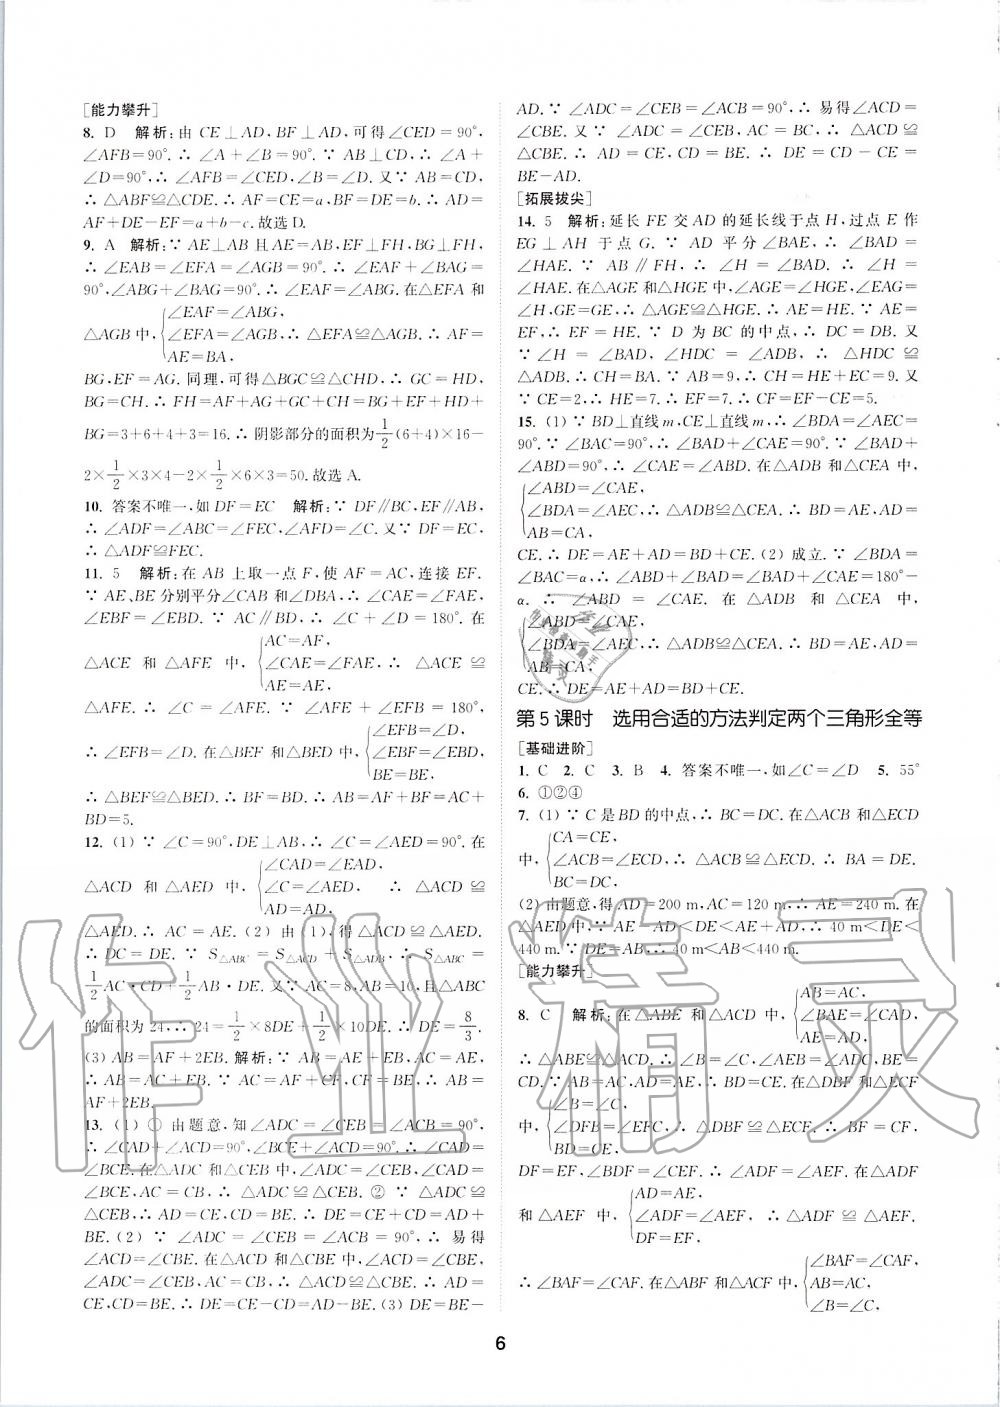 [能力攀升]
8. D 解析:由 CE⊥AD,BF⊥AD,可得∠CED=90°,
∠AFB=90°.∴∠A+∠B=90°.∵AB⊥CD,∴∠A+
∠D=90°,∴∠AFB=∠CED,∠B=∠D.又∵AB=CD,
∴△ABF≌△CDE.∴AF=CE=a,BF=DE=b.∴AD=
AF+DE-EF=a+b-c.故选D.
9. A 解析:∵AE⊥AB且AE=AB,EF⊥FH,BG⊥FH,
∴∠EAB=∠EFA=∠AGB=90°.∴∠EAF+∠BAG=
90°,∠ABG+∠BAG=90°.∴∠EAF=∠ABG.在△EFA和
△AGB中,{∠EAF=∠ABG,
∠EFA=∠AGB,∴△EFA≌△AGB.∴AF=
AE=BA,
BG,EF=AG.同理,可得△BGC≌△CHD.∴GC=HD,
BG=CH.∴FH=AF+AG+GC+CH=BG+EF+HD+
BG=3+6+4+3=16.∴阴影部分的面积为1/2(6+4)×16-
2×1/2×3×4-2×1/2×6×3=50.故选A.
10. 答案不唯一,如DF=EC 解析:∵DF∥BC,EF∥AB,
∴∠ADF=∠ABC=∠FEC,∠AFD=∠C.又∵DF=EC,
∴△ADF≌FEC.
11. 5 解析:在AB上取一点F,使AF=AC,连接EF.
∵AE、BE分别平分∠CAB和∠DBA,∴∠CAE=∠FAE,
∠EBF=∠EBD.∵AC∥BD,∴∠C+∠D=180°.在
△ACE和△AFE中,{AC=AF,
∠CAE=∠FAE,∴△ACE≌
AE=AE,
△AFE.∴∠C=∠AFE.∵∠AFE+∠EFB=180°,
∴∠EFB=∠D.在△BEF和△BED中,{∠EFB=∠D,
∠EBF=∠EBD,
BE=BE,
∴△BEF≌△BED.∴BF=BD.∴AB=AF+BF=AC+
BD=5.
12. (1)∵∠C=90°,DE⊥AB,∴∠C=∠AED=90°.在
△ACD和△AED中,{∠CAD=∠EAD,
∠C=∠AED, ∴△ACD≌
AD=AD,
△AED.∴AC=AE.(2)由(1),得△ACD≌△AED.
∴DC=DE.∵S△ABC=S△ACD+S△ADB,∴S△ABC=
1/2AC·CD+1/2AB·DE.又∵AC=8,AB=10,且△ABC
的面积为24,∴24=1/2×8DE+1/2×10DE.∴DE=8/3.
(3)AB=AF+2EB.解析:∵AB=AE+EB,AC=AE,
∴AB=AC+EB.∵AC=AF+CF,CF=BE,∴AB=
AF+2EB.
13. (1)①由题意,知∠ADC=∠CEB=∠ACB=90°.
∴∠CAD+∠ACD=90°,∠BCE+∠ACD=90°.∴∠CAD=
∠BCE.在△ADC和△CEB中,∠ADC=∠CEB,∠CAD=
∠BCE,AC=CB,∴△ADC≌△CEB.②∵△ADC≌
△CEB,∴AD=CE,CD=BE.∴DE=CE+CD=AD+
BE.(2)∵∠ADC=∠CEB=∠ACB=90°,∴易得
∠ACD=∠CBE.在△ACD和△CBE中,∠ACD=∠CBE,
∠ADC=∠CEB,AC=CB,∴△ACD≌△CBE.∴AD=
CE,CD=BE.∴DE=CE-CD=AD-BE.(3)DE=BE-
AD.∵∠ADC=∠CEB=∠ACB=90°,∴易得∠ACD=
∠CBE.又∵∠ADC=∠CEB,AC=BC,∴△ACD≌
△CBE.∴AD=CE,CD=BE.∴DE=CD-CE=
BE-AD.
[拓展拔尖]
14. 5 解析:延长FE交AD的延长线于点H,过点E作
EG⊥AH于点G.∵AD平分∠BAE,∴∠BAD=
∠HAE.∵AB∥FH,∴∠H=∠BAD.∴∠H=
∠HAE.在△AGE和△HGE中,∠AGE=∠HGE,∠EAG=
∠H,GE=GE,∴△AGE≌△HGE.∴AE=HE.∵AE=
EF,∴EF=HE.∵D为BC的中点,∴DC=DB.又
∵∠H=∠BAD,∠HDC=∠ADB,∴△HDC≌
△ADB.∴CH=BA.∵AB=9,∴CH=HE+EC=9.又
∵CE=2,∴HE=7.∴EF=7.∴CF=EF-CE=5.
15. (1)∵BD⊥直线m,CE⊥直线m,∴∠BDA=∠AEC=
90°.∵∠BAC=90°,∴∠BAD+∠CAE=90°.∵∠BAD+
∠ABD=90°,∴∠CAE=∠ABD.在△ADB和△CEA中,
{∠ABD=∠CAE,
∠BDA=∠AEC,∴△ADB≌△CEA.∴BD=AE,AD=
AB=CA,
CE.∴DE=AE+AD=BD+CE.(2)成立.∵∠BDA=
∠BAC=α,∴∠ABD+∠BAD=∠BAD+∠CAE=180°-
α.∴∠ABD=∠CAE.在△ADB和△CEA中,
{∠ABD=∠CAE,
∠BDA=∠AEC,∴△ADB≌△CEA.∴BD=AE,AD=
AB=CA,
CE.∴DE=AE+AD=BD+CE.
第5课时 选用合适的方法判定两个三角形全等
[基础进阶]
1. C 2. C 3. B 4. 答案不唯一,如∠C=∠D 5. 55°
6. ①②④
7. (1)∵C是BD的中点,∴BC=DC.在△ACB和△ECD
中,{CA=CE,
∠ACB=∠ECD,∴△ACB≌△ECD.∴BA=DE.
BC=DC,
(2)由题意,得AD=200 m,AC=120 m,∴AE=240 m.在
△AED中,∵AE-AD<DE<AE+AD,∴40 m<DE<
440 m.∵DE=AB,∴40 m<AB<440 m.
[能力攀升]
8. C 解析:在△ABE和△ACD中,{AB=AC,
∠BAE=∠CAD,
AE=AD,
∴△ABE≌△ACD.∴∠B=∠C,∠AEB=∠ADC,BE=
CD.∵AB=AC,AD=AE,∴BD=CE.在△BDF和△CEF
中,{∠B=∠C,
∠DFB=∠EFC,∴△BDF≌△CEF.∴BF=CF,
BD=CE,
DF=EF,∠BDF=∠CEF.∴∠ADF=∠AEF.在△ADF
和△AEF中,{AD=AE,
∠ADF=∠AEF,∴△ADF≌△AEF.
DF=EF,
∴∠BAF=∠CAF.在△ABF和△ACF中,{∠BAF=∠CAF,
AB=AC,
∠B=∠C,
6
作业精灵